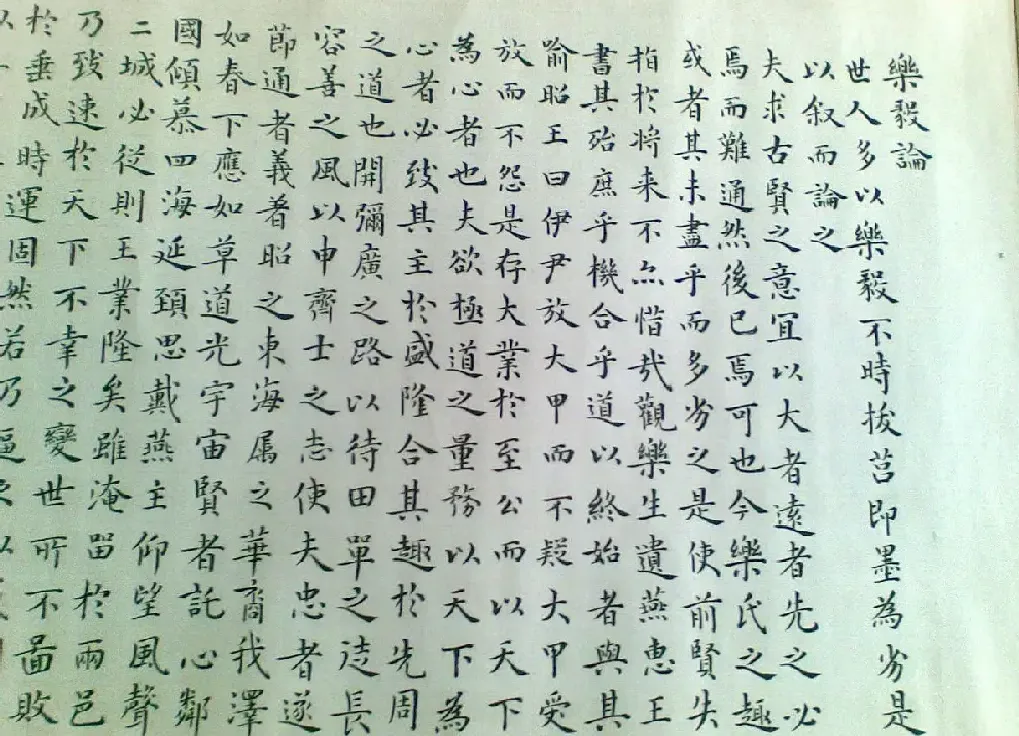 樂毅論
世人多以樂毅不時拔莒即墨為劣是
以叙而論之
夫求古賢之意宜以大者遠者先之必
焉而難通然後已焉可也今樂氏之趣
或者其未盡乎而多劣之是使前賢失
指於将来不亦惜哉觀樂生遺燕惠王
書其殆庶乎機合乎道以終始者與其
喻昭王曰伊尹放大甲而不疑大甲受
放而不怨是存大業於至公而以天下
為心者也夫欲極道之量務以天下為
心者必致其主於盛隆合其趣於先周
之道也開彌廣之路以待田單之徒長
容善之風以申齊士之志使夫忠者遂
節通者義著昭之東海属之華裔我澤
如春下應如草道光宇宙賢者託心鄰
國傾慕四海延頸思戴燕主仰望風聲
二城必從則王業隆矣雖淹留於兩邑
乃致速於天下不幸之變世所不啚敗
於垂成時運固然若乃逼之以